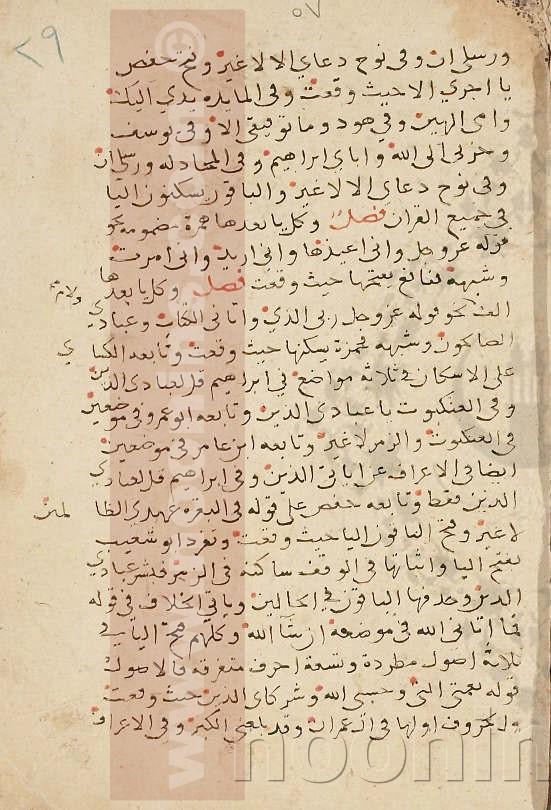 ٥٧
٢٩
ورسلي ان وفي نوح دعاي الا لا غير وفتح حفص
يا اجري الا حيث وقعت وفي المايده يدي اليك
وامي الهين وفي هود وما توفيقي الا وفي يوسف
وحزني الى الله واباي ابراهيم وفي المجادله ورسلي ان
وفي نوح دعاي الا لا غير والباقون يسكنون اليا
في جميع القران فصل وكل يا بعدها همزة مضمومه نحو
قوله عز وجل واني اعيذها واني اريد واني امرت
وشبهه فنافع يفتحها حيث وقعت فصل وكل يا بعدها
الف نحو قوله عز وجل ربي الذي واتاني الكتاب وعبادي
ولام
الصالحون وشبهه فحمزة يسكنها حيث وقعت وتابعه الكساي
على الاسكان في ثلاثة مواضع في ابراهيم قل لعبادي الذين
وفي العنكبوت يا عبادي الذين وتابعه ابو عمرو في موضعين
في العنكبوت والزمر لا غير وتابعه ابن عامر في موضعين
ايضا في الاعراف عن اياتي الذين وفي ابراهيم قل لعبادي
الذين فقط وتابعه حفص على قوله في البقره عهدي الظا
لمين
لا غير وفتح الباقون اليا حيث وقعت وتفرد ابو شعيب
بفتح اليا واثباتها في الوقف ساكنة في الزمر فبشر عبادي
الذين وحذفها الباقون في الحالين وياتي الخلاف في قوله
فما اتاني الله في موضعه ان شا الله وكلهم فتح اليا في
ثلاثة اصول مطردة وتسعة احرف متفرقه فالاصول
قوله نعمتي التي وحسبي الله وشركاي الذين حيث وقعت
والحروف اولها في ال عمران وقد بلغني الكبر وفي الاعراف
noonin